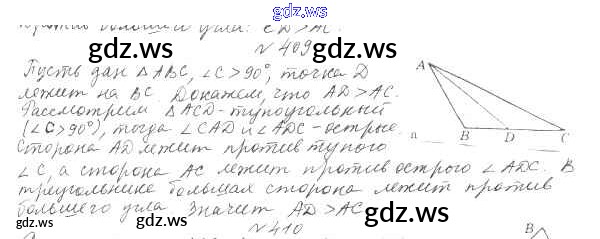 gdz.ws
против большего угла: CD > AC.
gdz.ws № 409 gdz.ws
Пусть дан △ABC, ∠C>90°, точка D
лежит на BC. Докажем, что AD > AC.
Рассмотрим △ACD - тупоугольный
(∠C>90°), тогда ∠CAD и ∠ADC - острые.
Сторона AD лежит против тупого
∠C, а сторона AC лежит против острого ∠ADC. В
треугольнике большая сторона лежит против
большего угла. Значит AD > AC
gdz.ws gdz.ws
№ 410
A
B D C
a
B